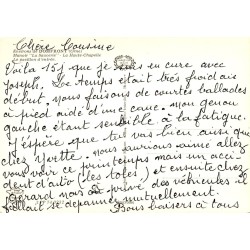 Chère Cousine
Voilà 15j que je suis en cure avec
Joseph. Le temps était très froid au
début. nous faisons de courtes ballades
à pied aidé d'une cane. mon genou
gauche étant sensible à la fatigue.
J'espère que tu vas bien ainsi que
chez Yvette. nous aurions aimé allez
vous voir ce printemps mais un acci
dent d'auto (les toles) et ensuite chez
Gérard nous a privé des véhicules il
fallait se dépanner mutuellement.
Bons baisers à tous